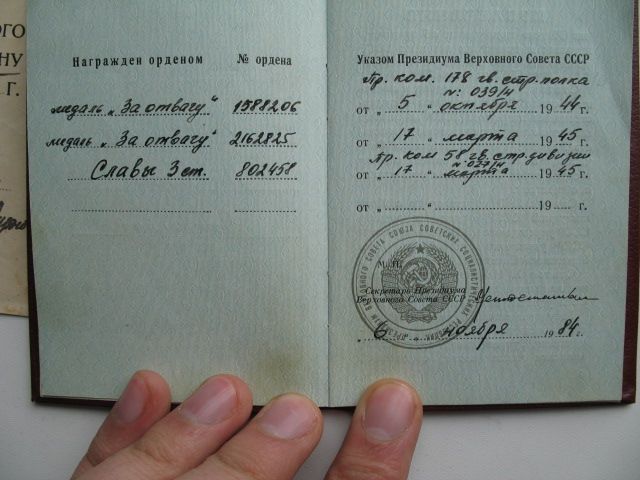 ОГО
НУ
Г.
Награжден орденом
№ ордена
медаль „За отвагу“ 1588206
медаль „За отвагу“ 2162825
Славы 3 ст. 802458
Указом Президиума Верховного Совета СССР
Пр. ком. 178 гв. стр. полка
N: 039/н
от „ 5 “ октября 1944 г.
от „ 17 “ марта 1945 г.
Пр. ком 58 гв. стр. дивизии
N 027/н
от „ 17 “ марта 1945 г.
от „ “ 19 г.
М. П.
Секретарь Президиума
Верховного Совета СССР
„ 6 “ ноября 1984 г.